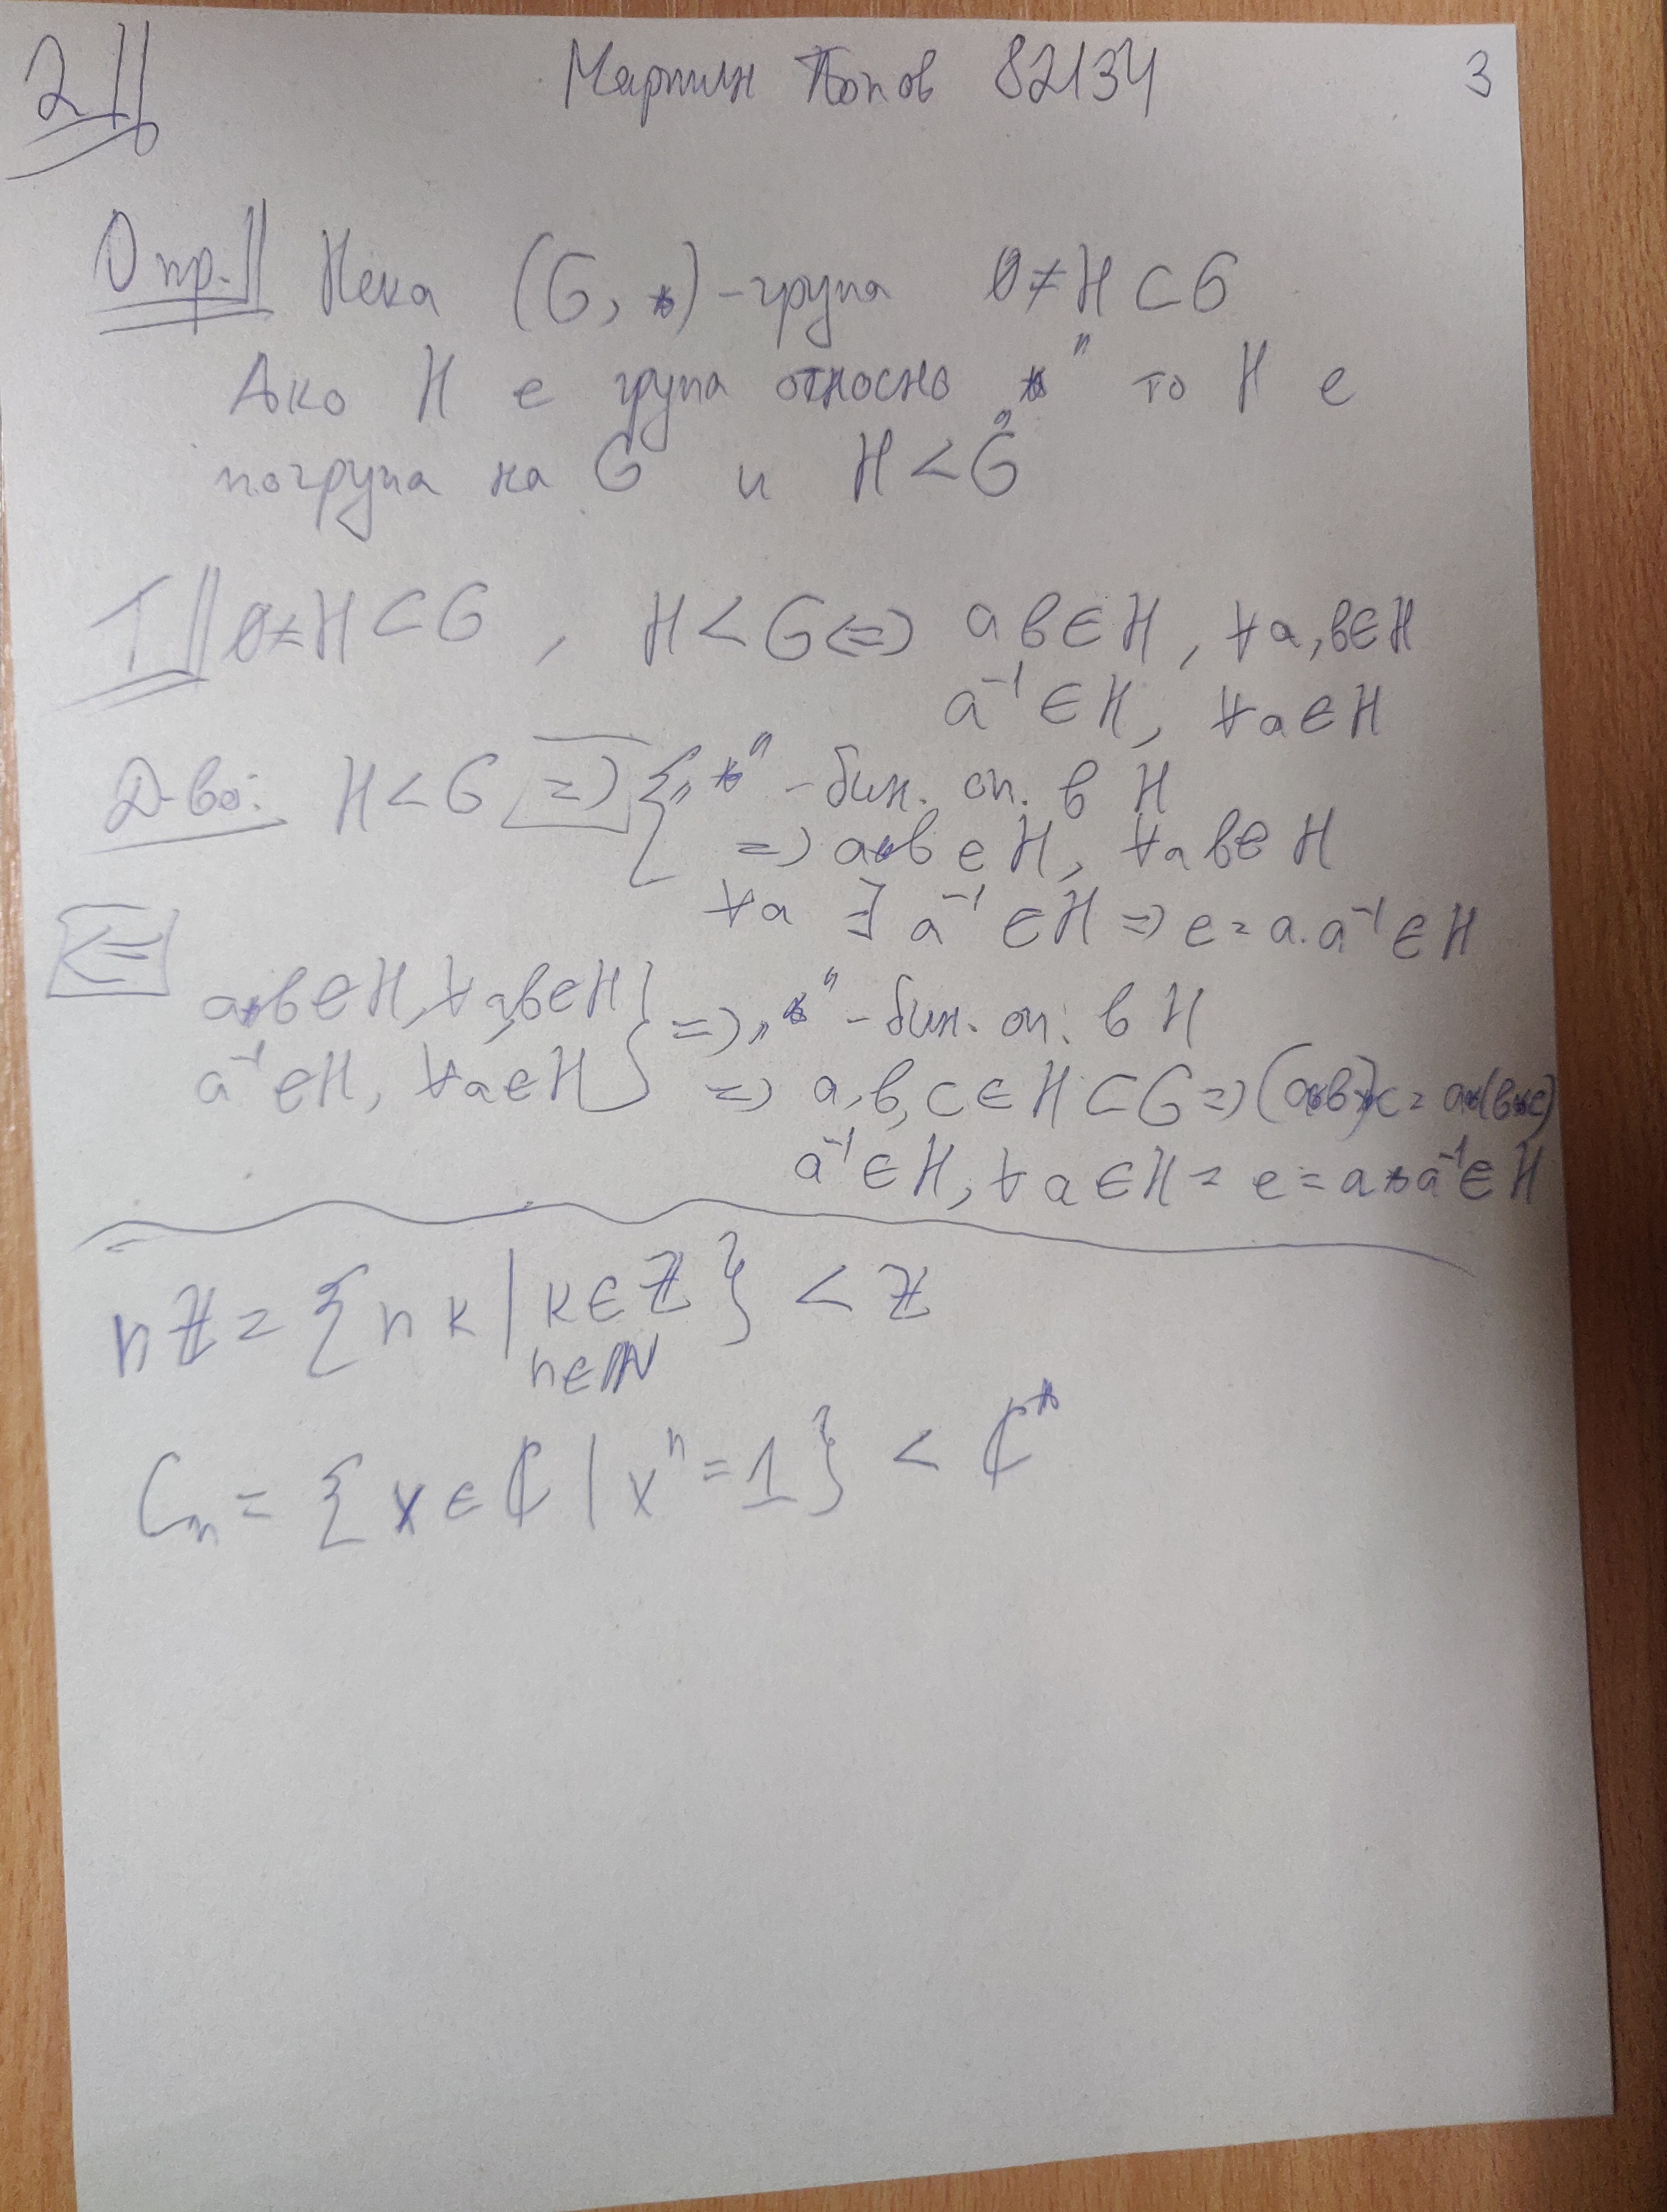 2||
Мартин Попов 82134
3
Опр.|| Нека (G, *) - група ∅≠H⊂G
Ако H е група относно „*" то H е
погрупа на G и H<G
T|| ∅≠H⊂G, H<G<=> ab∈H, ∀a,b∈H
a⁻¹∈H, ∀a∈H
Д-во: H<G => { „*" - бин. оп. в H
=> a*b∈H, ∀a b∈H
∀a ∃ a⁻¹∈H => e=a.a⁻¹∈H
<=
a*b∈H, ∀a,b∈H } => „*" - бин. оп. в H
a⁻¹∈H, ∀a∈H } => a,b,c∈H⊂G => (a*b)*c=a*(b*c)
a⁻¹∈H, ∀a∈H = e=a*a⁻¹∈H
nℤ={nk | k∈ℤ}<ℤ
n∈ℕ
Cₙ={x∈ℂ | xⁿ=1}<ℂ*